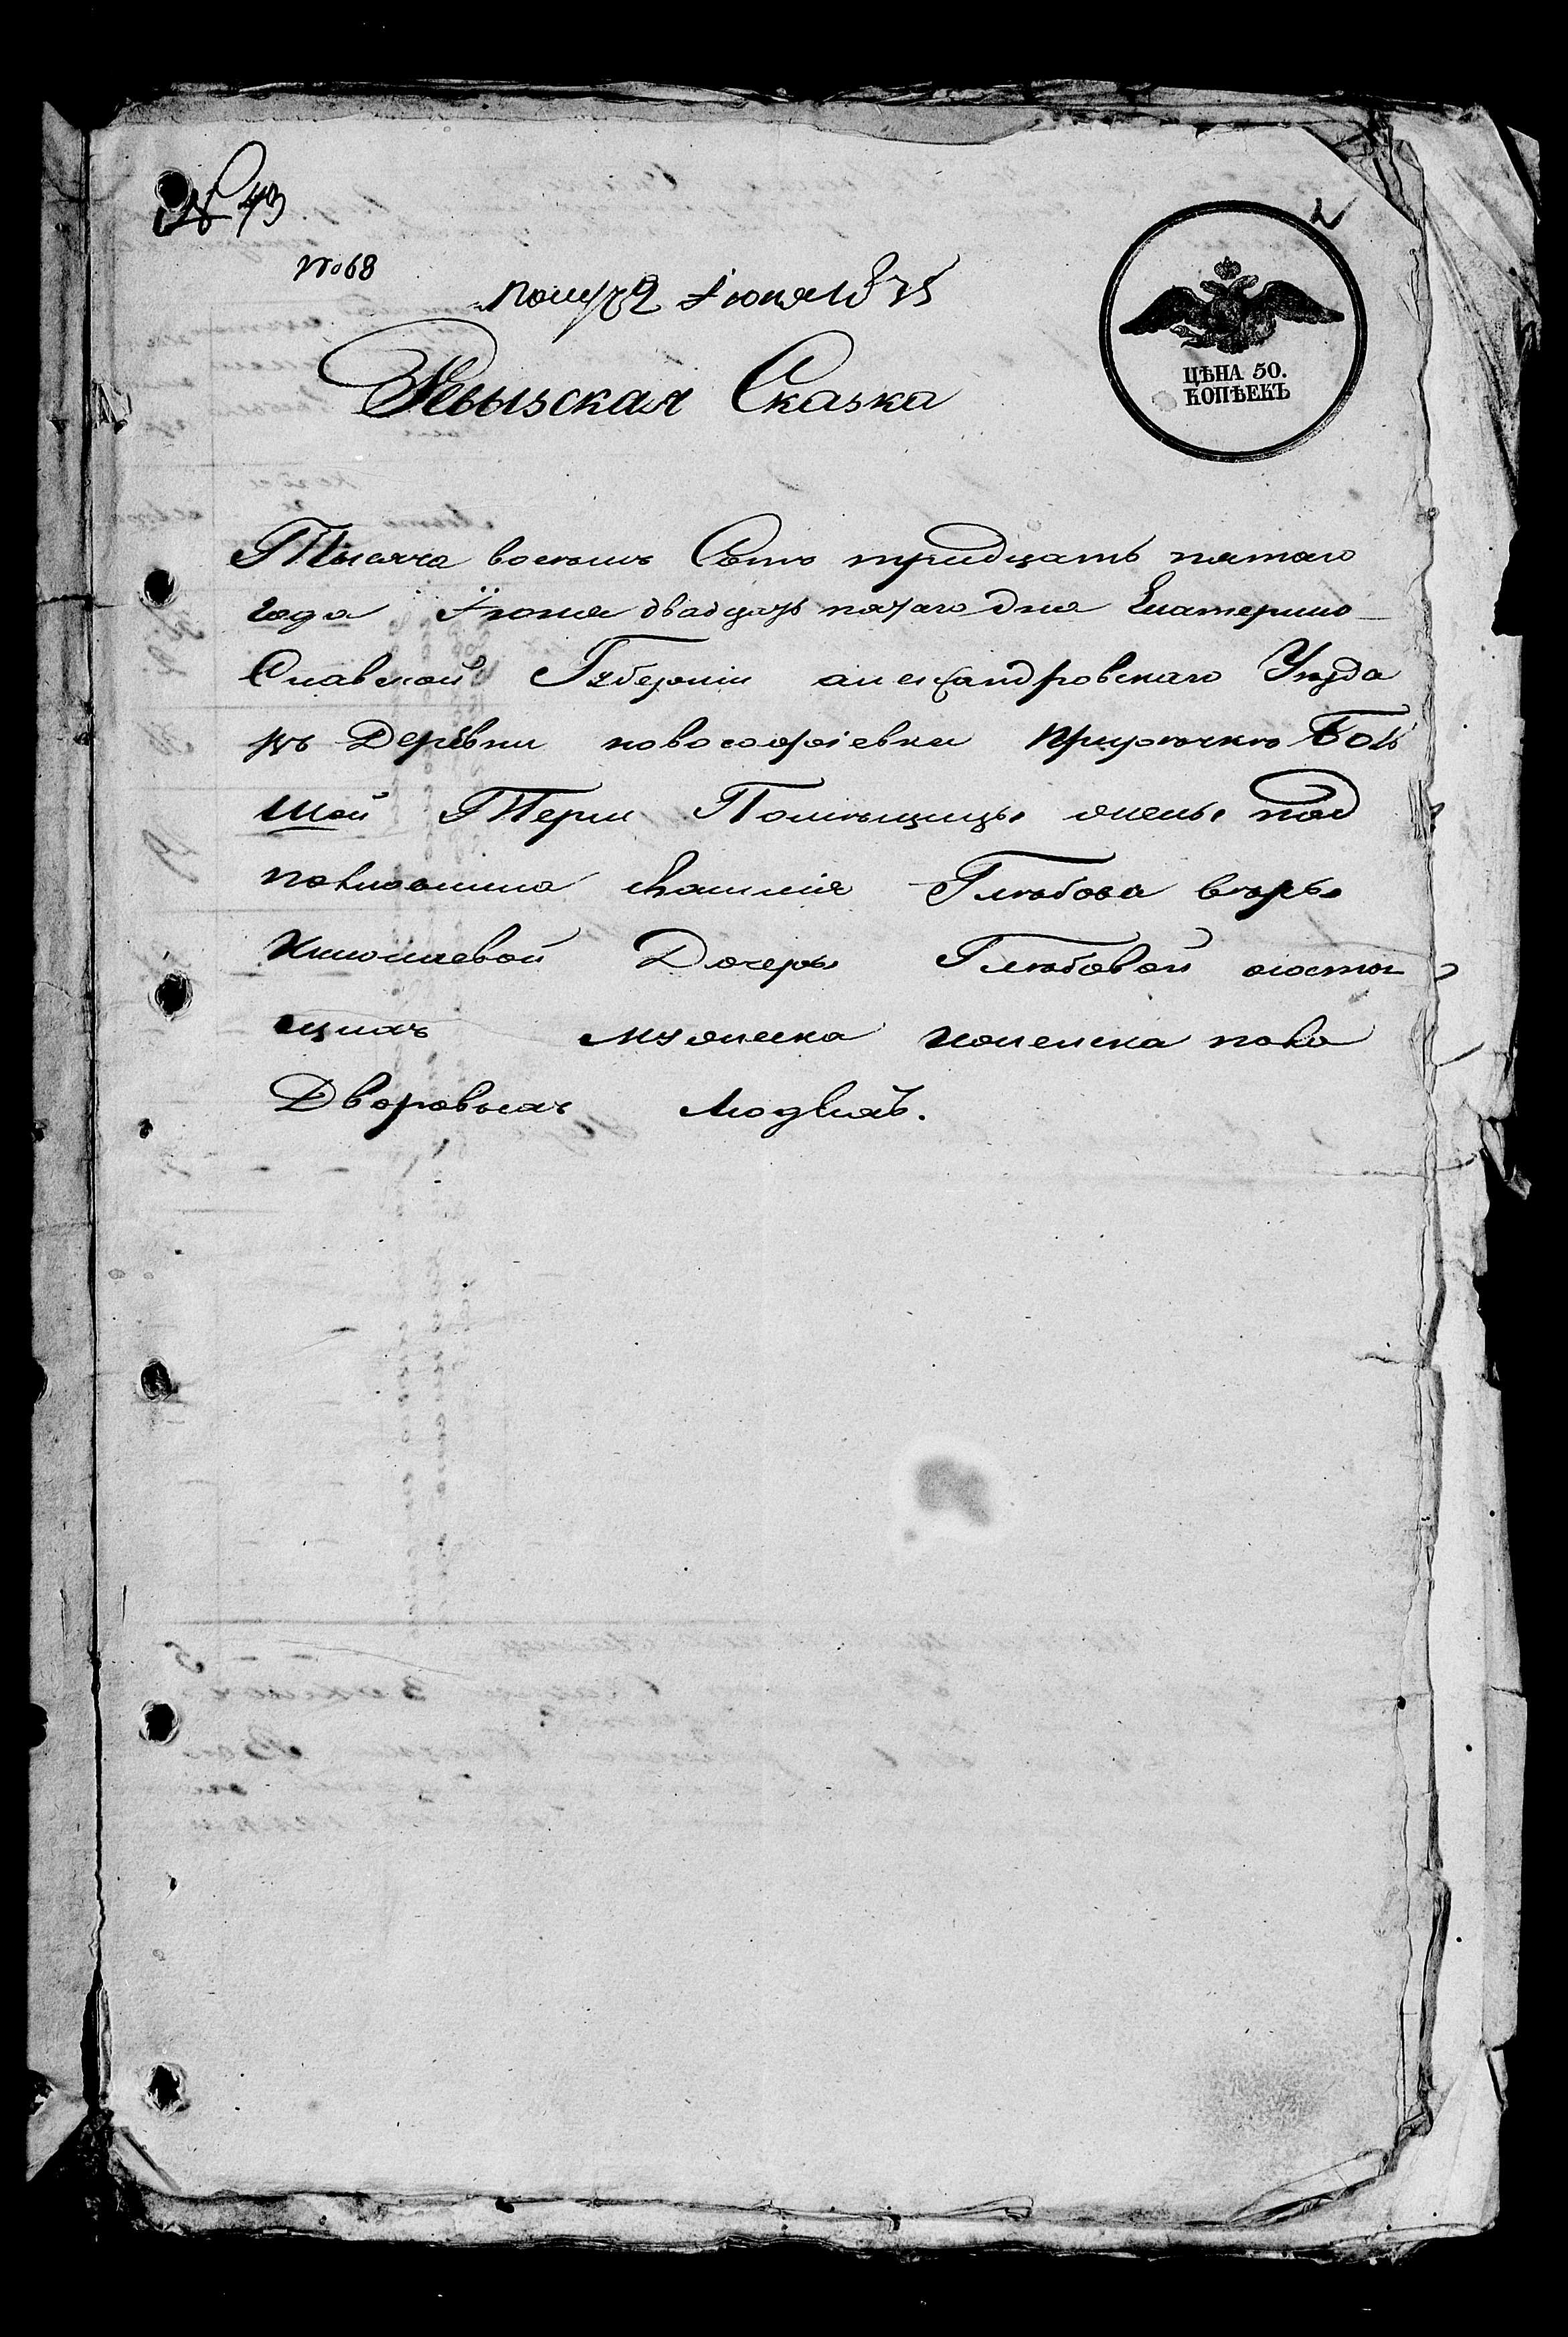 № 43
2
№ 68
Получ 2 Іюля 1835
Ревызская Сказка
ЦѢНА 50.
КОПѢЕКЪ
Тысяча восемь Сотъ тридцать пятого
года Іюня двадцать пятаго дня Екатерино
Славской Губерніи александровскаго Уезда
въ Деревни новософіевки при речке Боль
шой Терси Помѣщицы жены под
полковника Глѣбова веры
Николаевой Дочеры Глебовой о состоя
щихъ мужеска и женска пола
Дворовыхъ людяхъ.